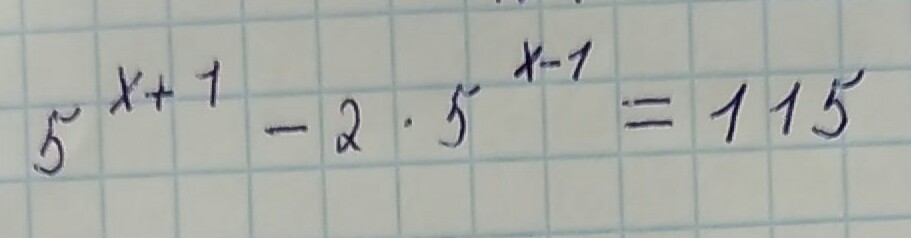 5^{x+1} - 2 · 5^{x-1} = 115